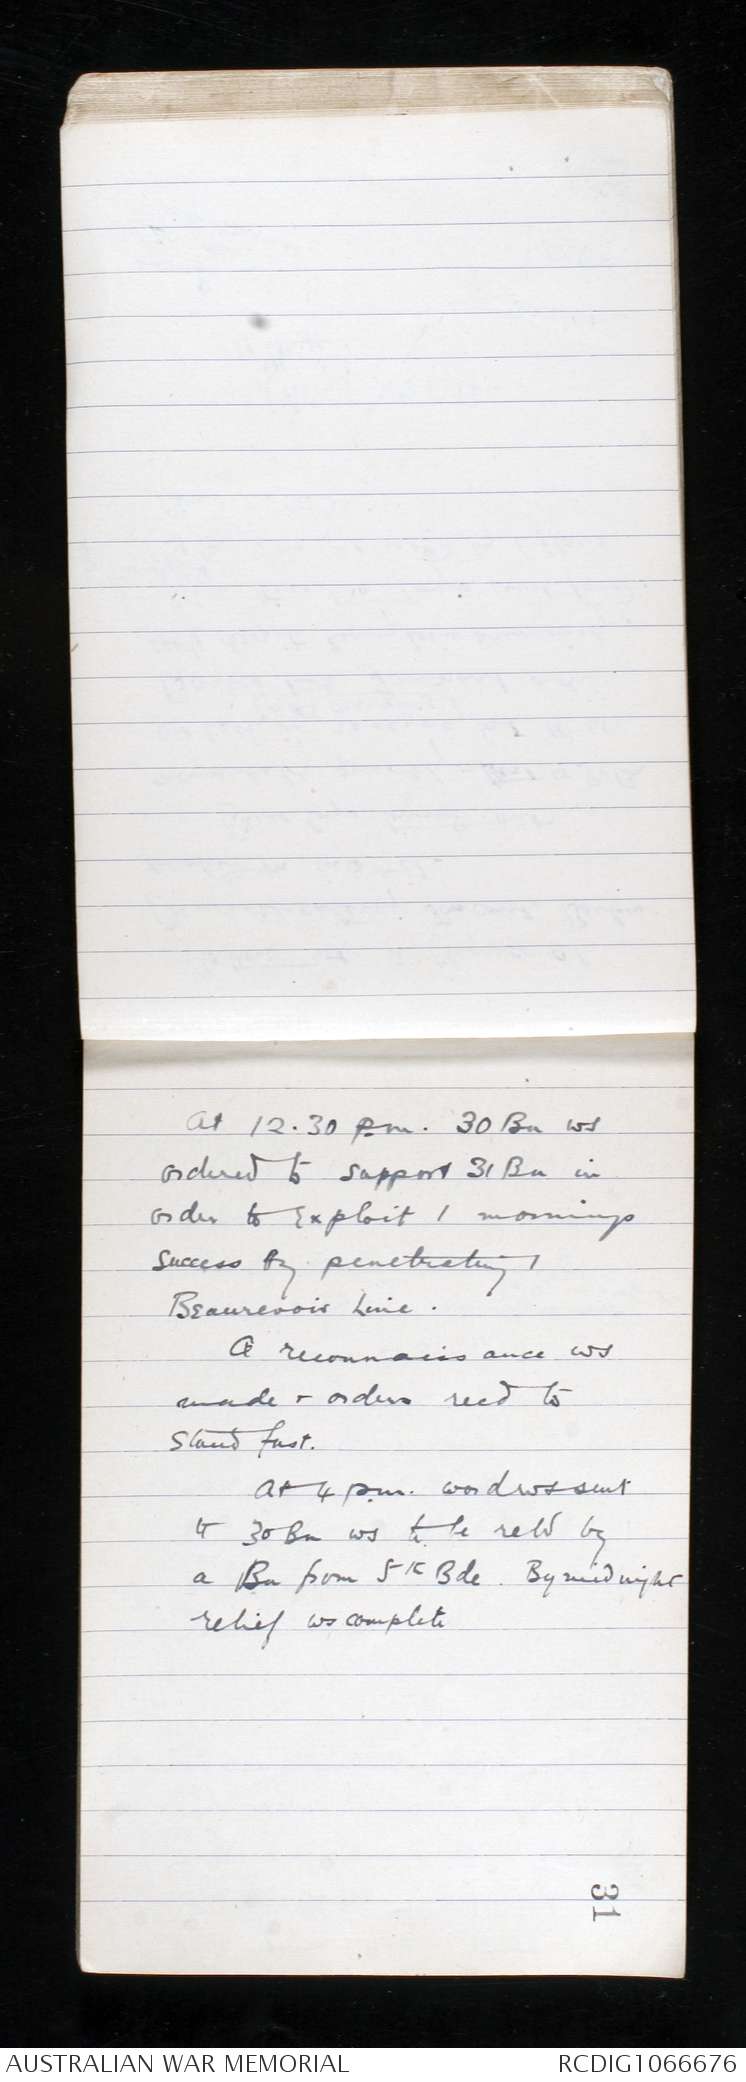 At 12.30 p.m. 30 Bn ws
ordered to support 31 Bn in
order to exploit / mornings
success by penetrating /
Beaurevoir Line.
A reconnaissance ws
made + orders recd to
Stand fast.
At 4 p.m. word ws sent
tt 30 Bn ws to be reld by
a Bn from 5th Bde. By midnight
relief ws complete
31
AUSTRALIAN WAR MEMORIAL
RCDIG1066676